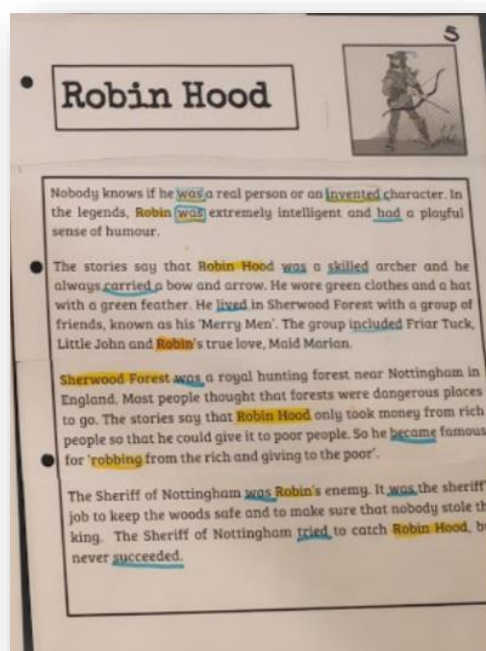 5
Robin Hood
Nobody knows if he was a real person or an invented character. In
the legends, Robin was extremely intelligent and had a playful
sense of humour.
The stories say that Robin Hood was a skilled archer and he
always carried a bow and arrow. He wore green clothes and a hat
with a green feather. He lived in Sherwood Forest with a group of
friends, known as his 'Merry Men'. The group included Friar Tuck,
Little John and Robin's true love, Maid Marian.
Sherwood Forest was a royal hunting forest near Nottingham in
England. Most people thought that forests were dangerous places
to go. The stories say that Robin Hood only took money from rich
people so that he could give it to poor people. So he became famous
for 'robbing from the rich and giving to the poor'.
The Sheriff of Nottingham was Robin's enemy. It was the sheriff'
job to keep the woods safe and to make sure that nobody stole th
king. The Sheriff of Nottingham tried to catch Robin Hood, b
never succeeded.